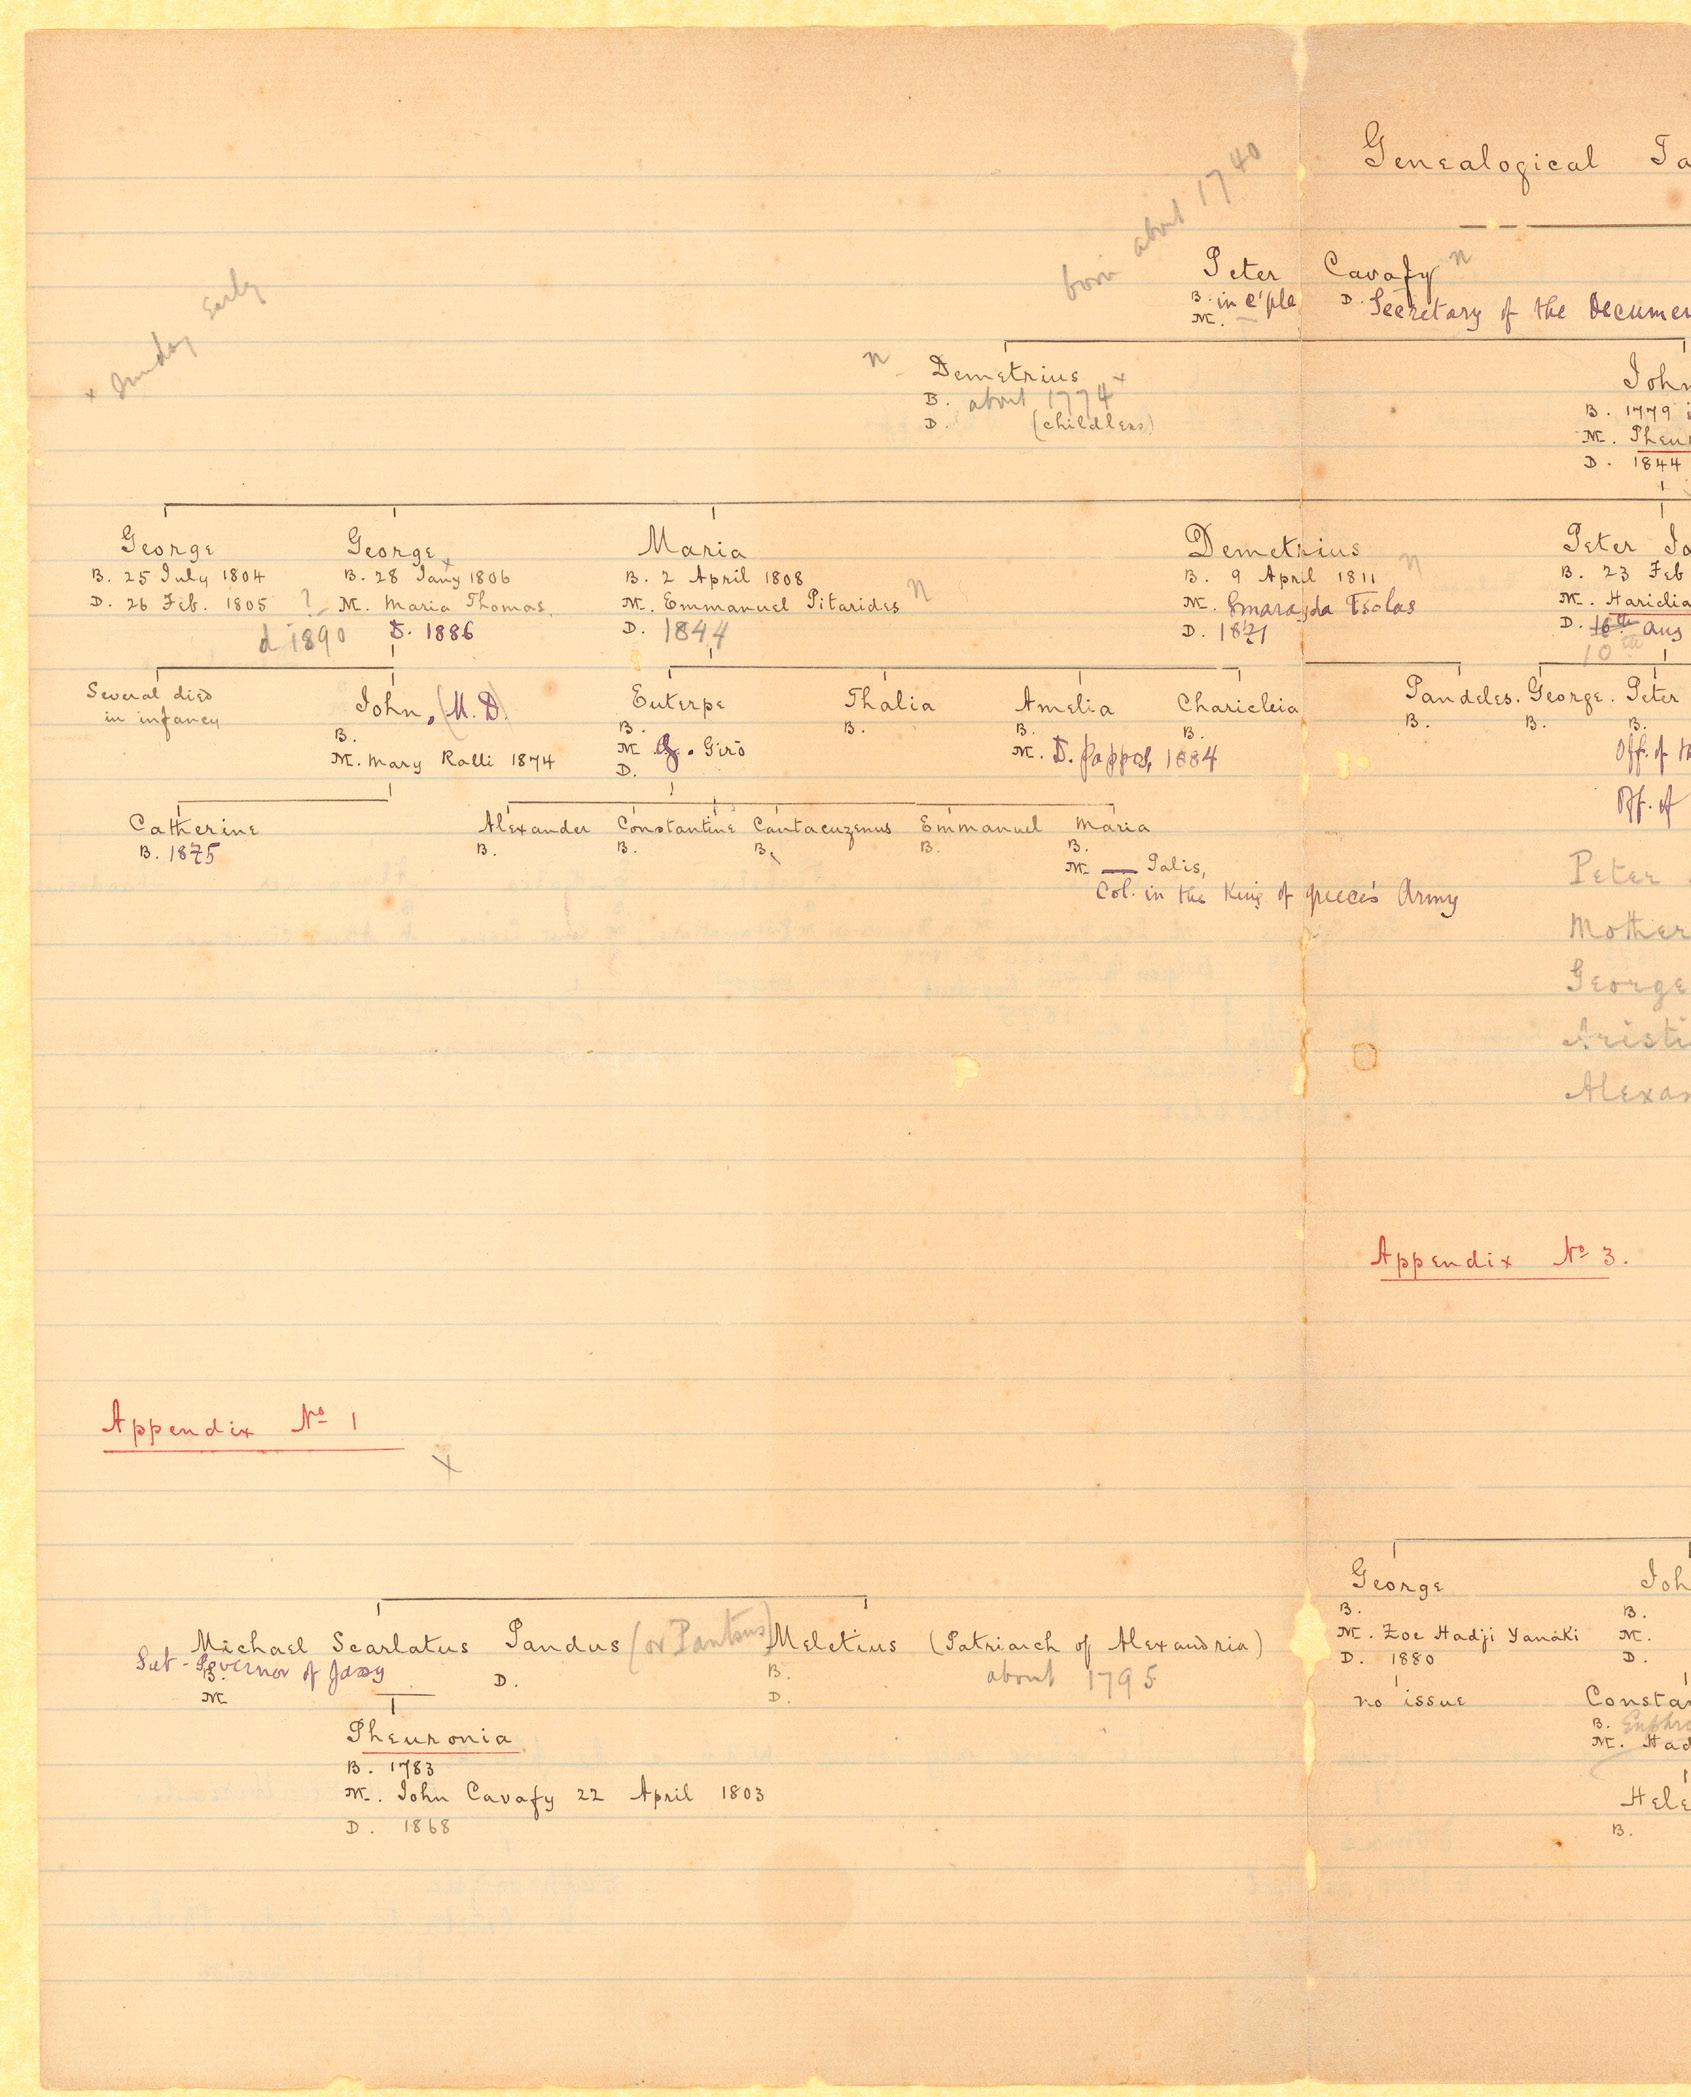 Genealogical Ta
born about 1740
Peter Cavafy n
B. in C'ple D. Secretary of the Documen
M. —
x Sunday Early
n Demetrius x
B. about 1774
D. (childless)
John
B. 1779 i
M. Pheu
D. 1844
George
B. 25 July 1804
D. 26 Feb. 1805
George x
B. 28 Jany 1806
? M. Maria Thomas.
d 1890 D. 1886
Maria
B. 2 April 1808
M. Emmanuel Pitarides n
D. 1844
Demetrius n
B. 9 April 1811
M. Smaragda Tsolas
D. 1871
Peter Jo
B. 23 Feb
M. Hariclia
D. 16th Aug
10th
Several died
in infancy
John, (M.D)
B.
M. Mary Ralli 1874
Euterpe
B.
M G. Girò
D.
Thalia
B.
Amelia
B.
M. D. Pappos, 1884
Charicleia
B.
Pandeles.
B.
George.
B.
Peter
B.
Off. of th
Off. of
Catherine
B. 1875
Alexander
B.
Constantine
B.
Cantacuzenus
B.
Emmanuel
B.
Maria
B.
M. — Palis,
Col. in the King of Greece's Army
Peter
Mother
George
Aristi
Alexan
Appendix No 3.
Appendix No 1
x
George
B.
M. Zoe Hadji Yanáki
D. 1880
no issue
Joh
B.
M.
D.
Constan
B. Euphro
M. Had
Hele
B.
Michael Scarlatus Pandus (or Pantus) Meletius (Patriarch of Alexandria)
Sub-Governor of Jassy
B.
M
D.
B.
D.
about 1795
Pheuronia
B. 1783
M. John Cavafy 22 April 1803
D. 1868